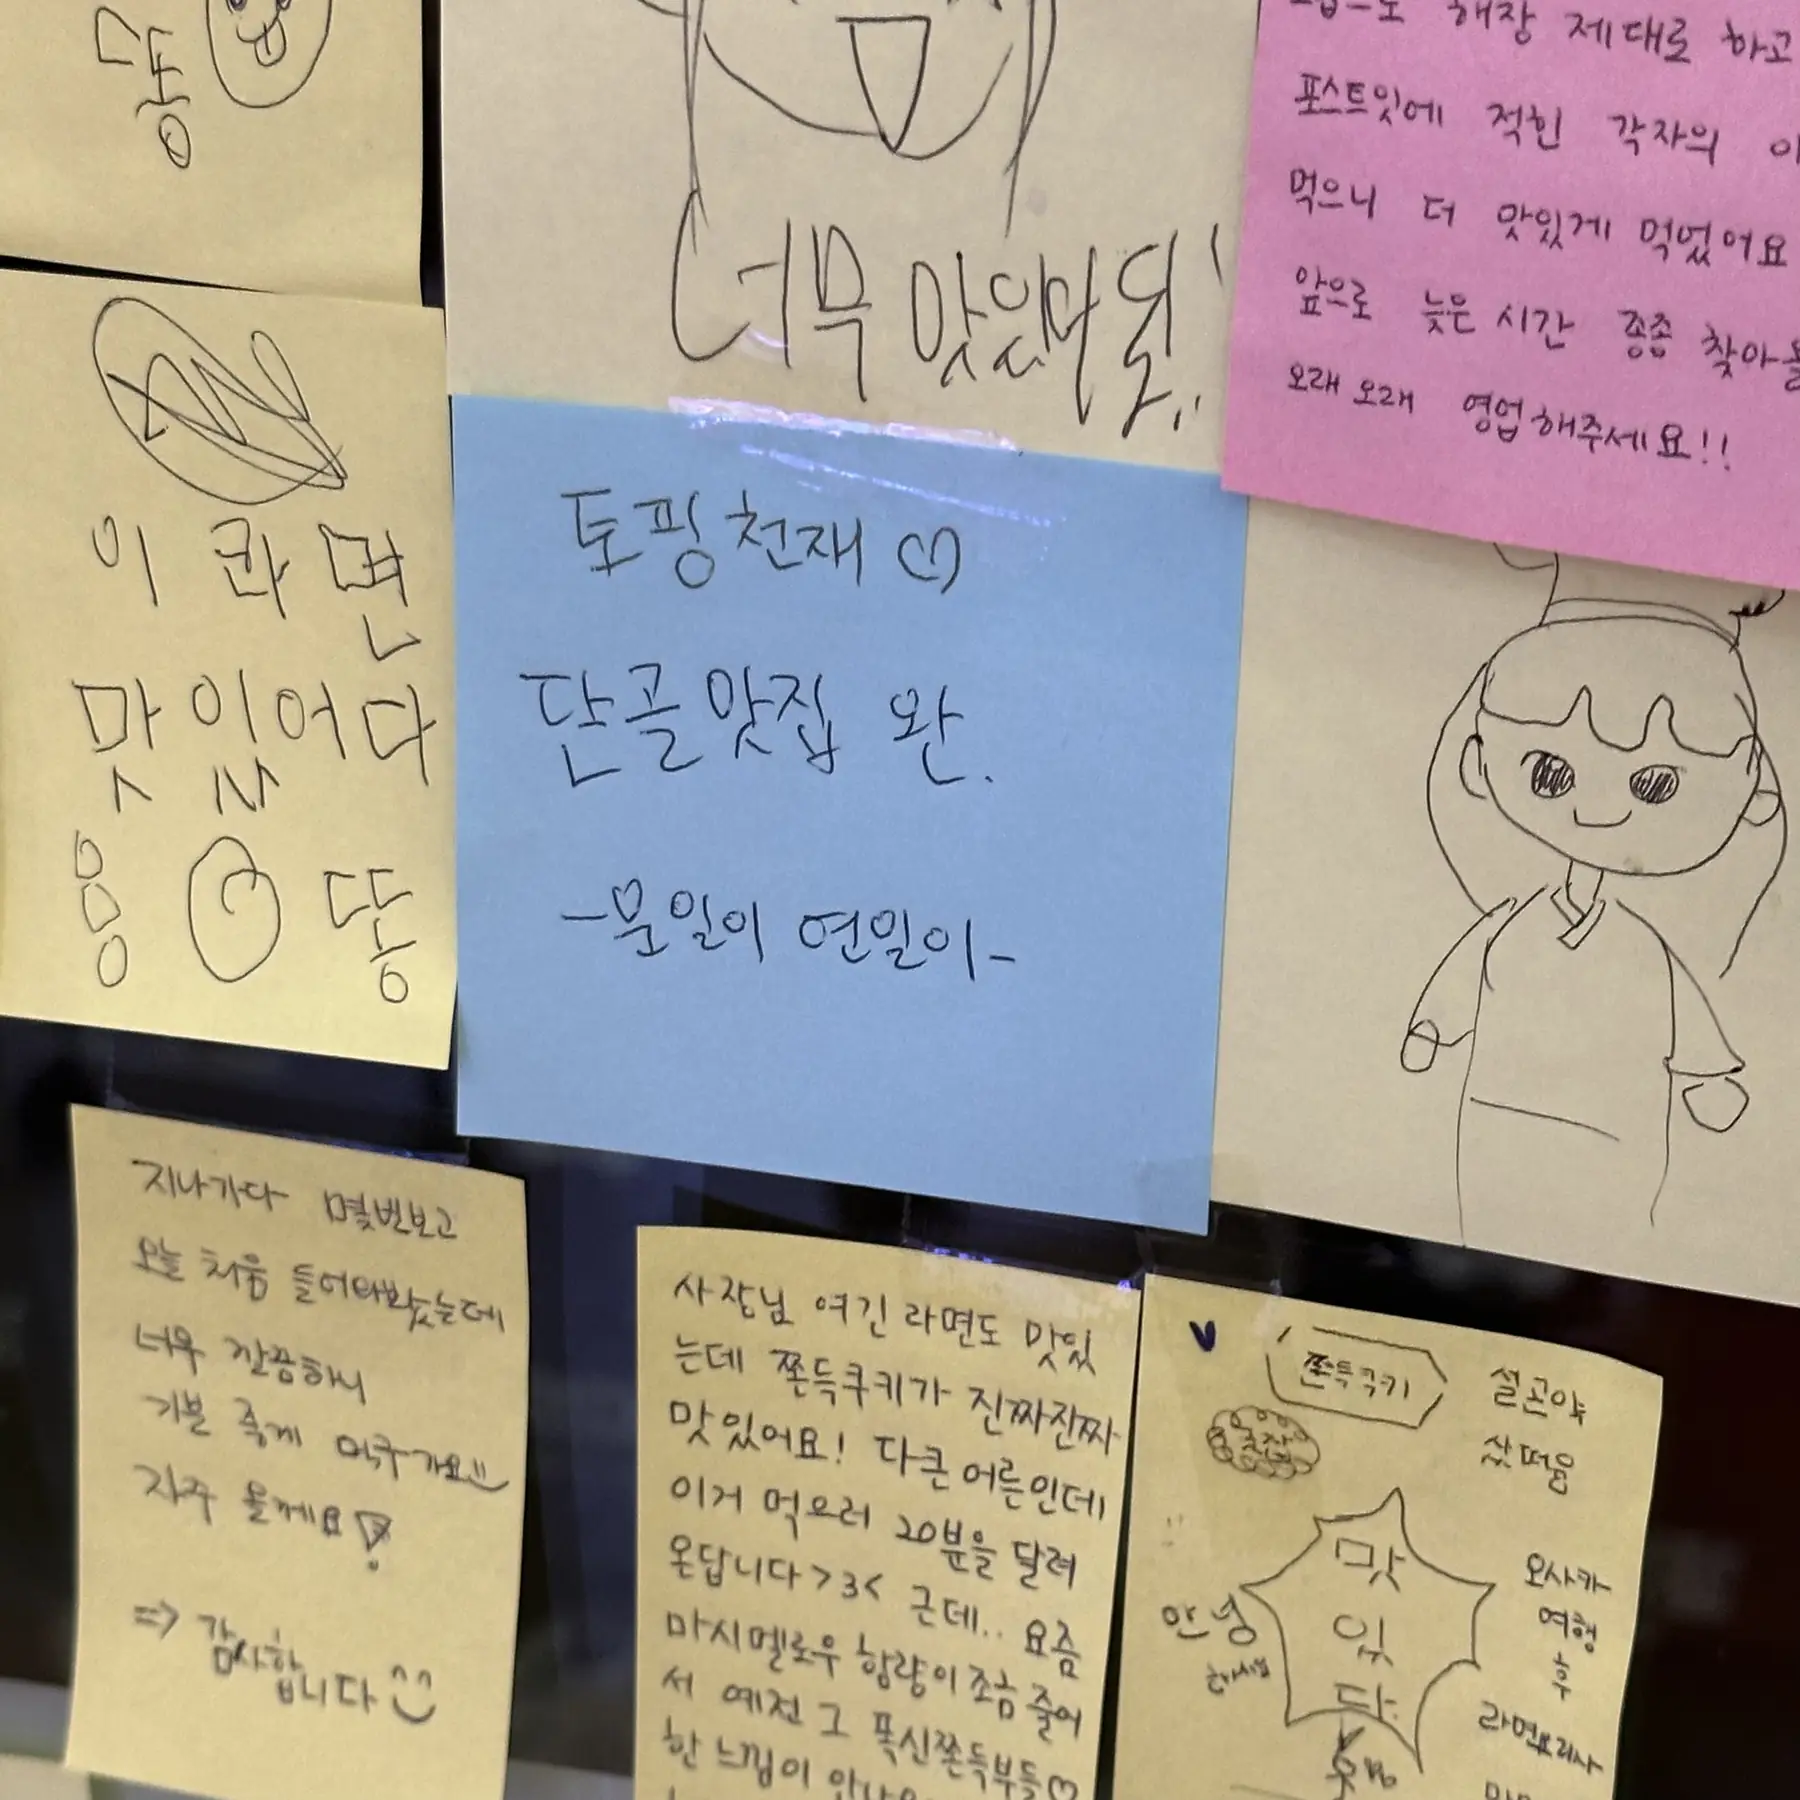 똥
너무 맛있따 잉!
해장 제대로 하고
포스트잇에 적힌 각자의
먹으니 더 맛있게 먹었어요
앞으로 늦은 시간 종종 찾아올
오래오래 영업해주세요!!
이 라면
맛있어다
응 똥
토핑천재 ♡
단골맛집 완.
-문일이 연일이-
지나가다 몇번보고
오늘 처음 들어와봤는데
너무 깔끔하니
기분 좋게 먹구가요
자주 올께요
=> 감사합니다 ^^
사장님 여긴 라면도 맛있
는데 쫀득쿠키가 진짜진짜
맛있어요! 다큰어른인데
이거 먹으러 20분을 달려
온답니다>3< 근데.. 요즘
마시멜로우 함량이 조금 줄어
서 예전 그 폭신쫀득부들♡
한 느낌이
쫀득쿠키
맛
있
다.
안녕
하세요
오사카
여행
후
라면